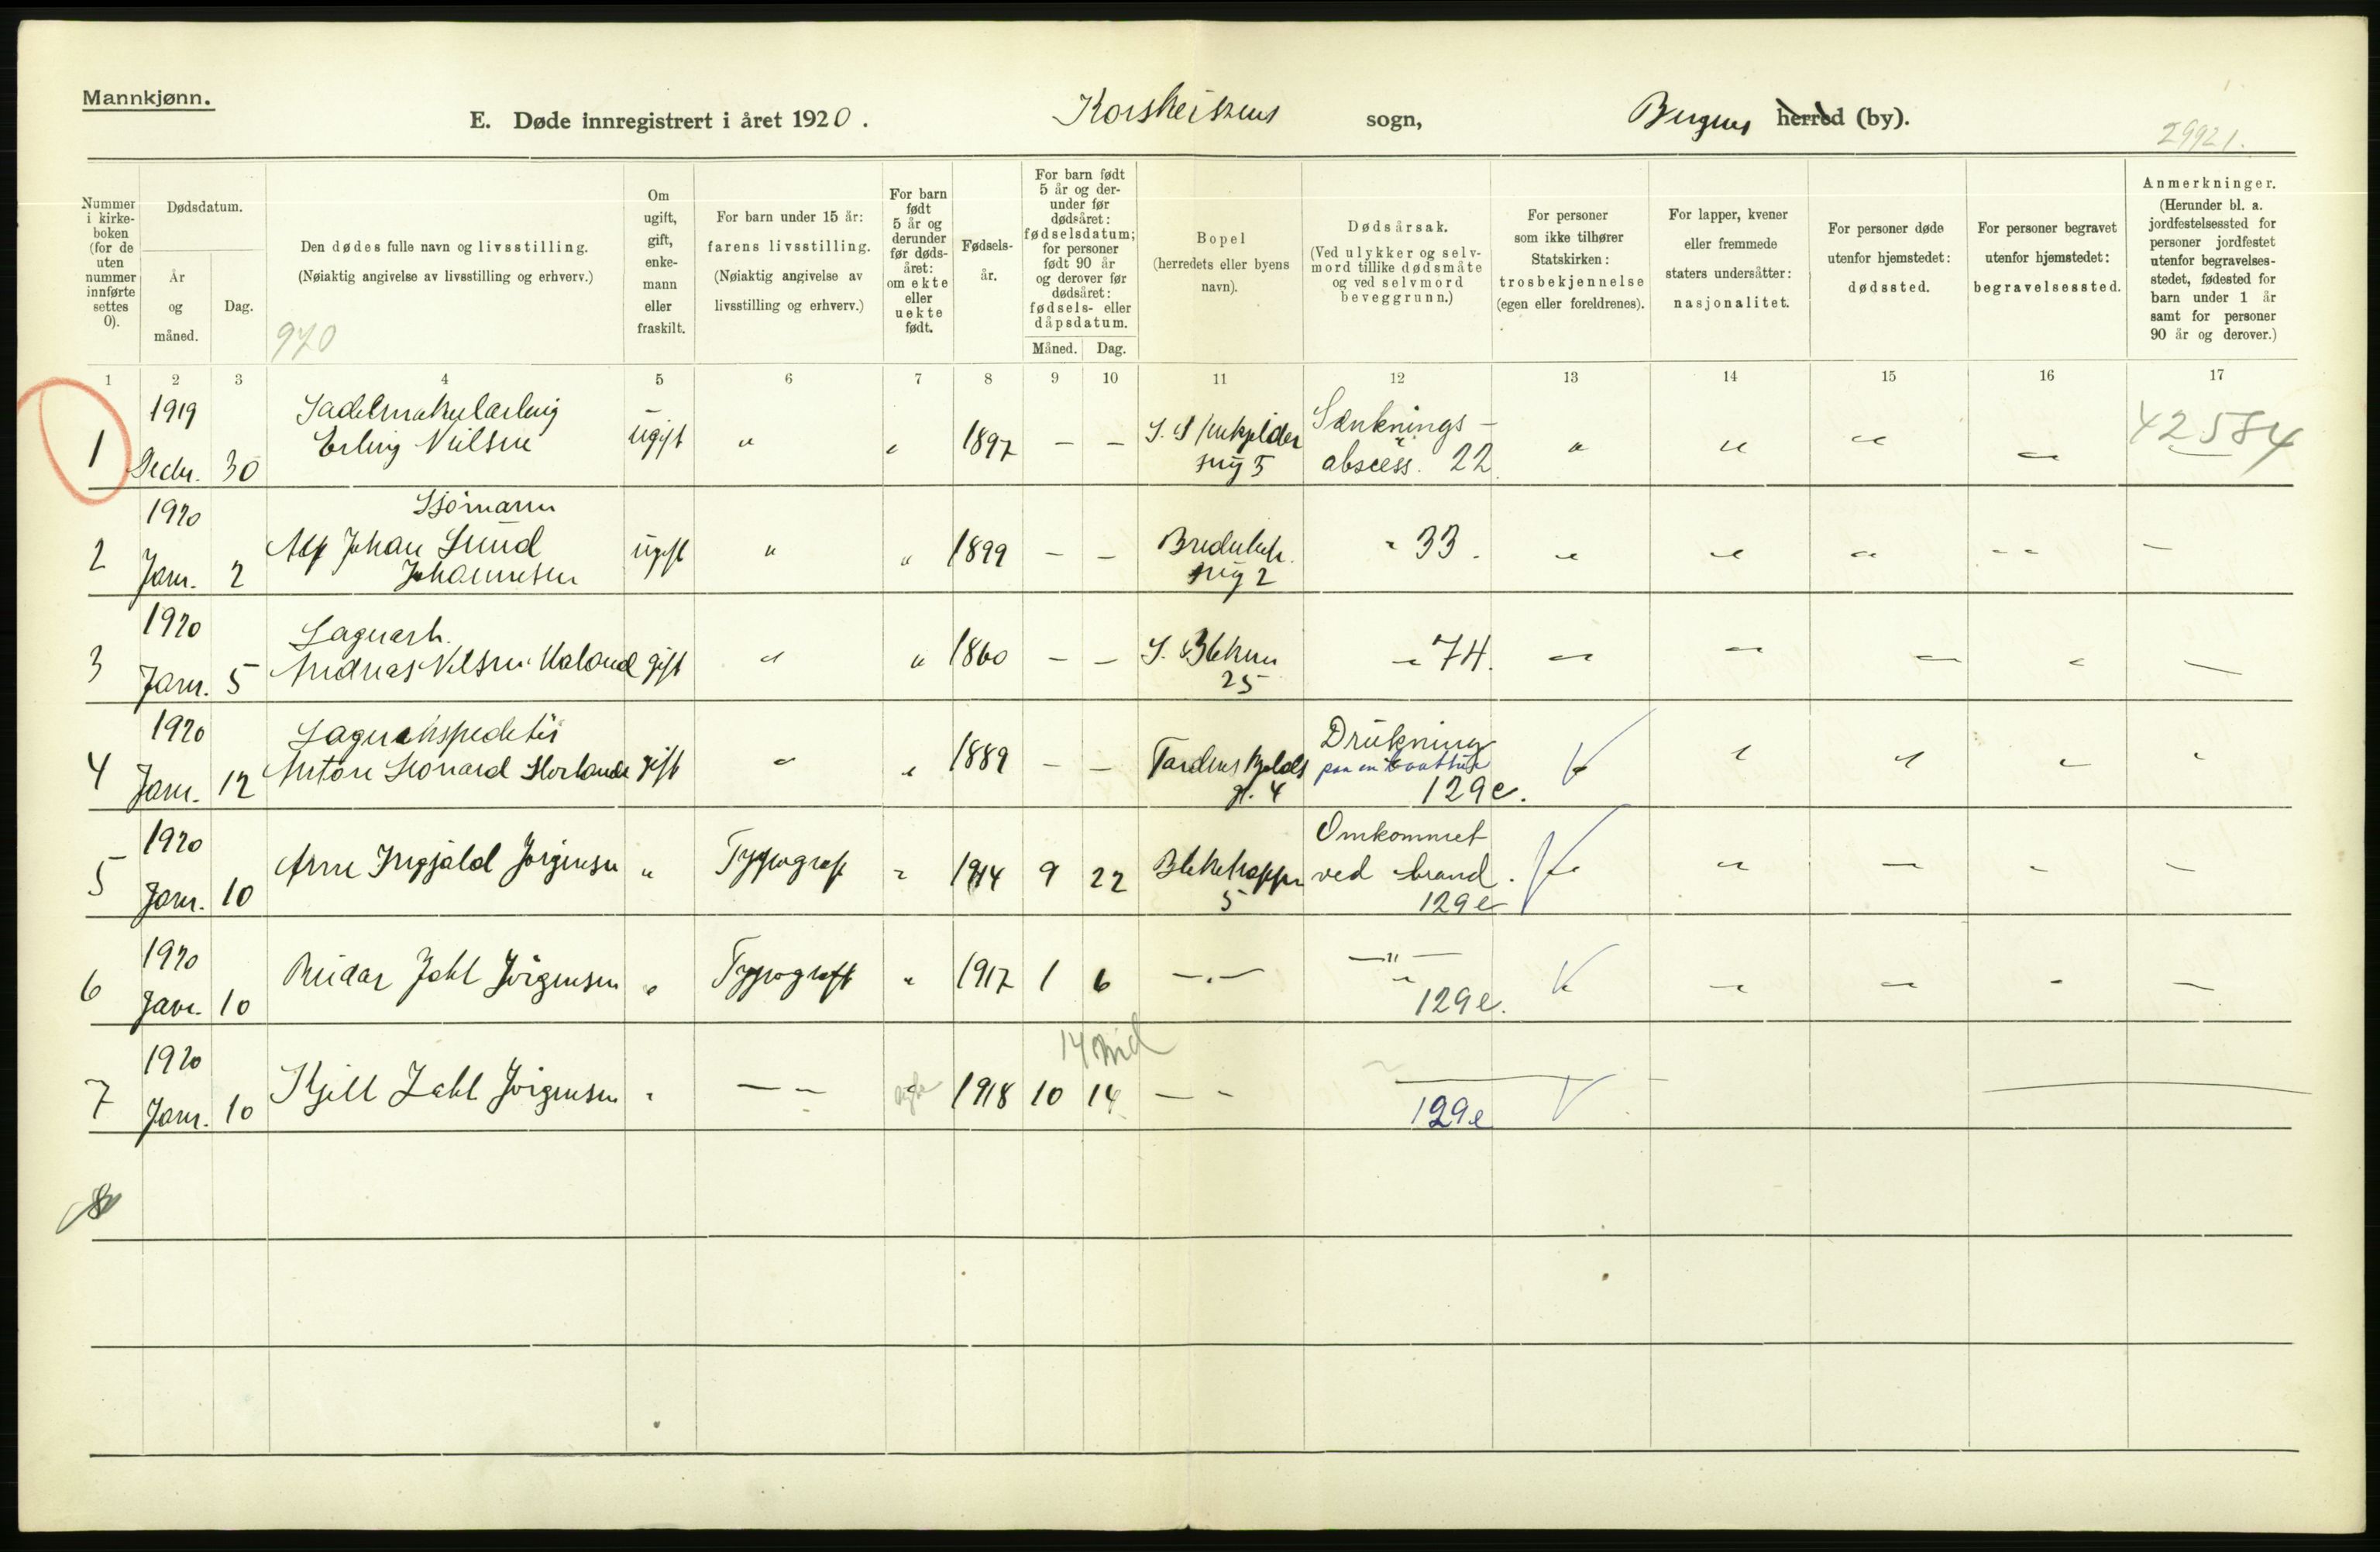 Mannkjønn.
E. Døde innregistrert i året 1920. Korskirkens sogn, Bergens herred (by).
29921.
Nummer i kirke-boken (for de uten nummer innførte settes 0).
Dødsdatum.
År og måned.
Dag.
Den dødes fulle navn og livsstilling.
(Nøiaktig angivelse av livsstilling og erhverv.)
970
Om ugift, gift, enke-mann eller fraskilt.
For barn under 15 år: farens livsstilling. (Nøiaktig angivelse av livsstilling og erhverv.)
For barn født 5 år og derunder før døds-året: om ekte eller uekte født.
Fødsels-år.
For barn født 5 år og der-under før dødsåret: fødselsdatum; for personer født 90 år og derover før dødsåret: fødsels- eller dåpsdatum.
Måned. Dag.
Bopel (herredets eller byens navn).
Dødsårsak. (Ved ulykker og selv-mord tillike dødsmåte og ved selvmord beveggrunn.)
For personer som ikke tilhører Statskirken: trosbekjennelse (egen eller foreldrenes).
For lapper, kvener eller fremmede staters undersåtter: nasjonalitet.
For personer døde utenfor hjemstedet: dødssted.
For personer begravet utenfor hjemstedet: begravelsessted.
Anmerkninger. (Herunder bl. a. jordfestelsessted for personer jordfestet utenfor begravelses-stedet, fødested for barn under 1 år samt for personer 90 år og derover.)
1 2 3 4 5 6 7 8 9 10 11 12 13 14 15 16 17
1 1919 Decbr. 30 Erling Nielsen ugift " " 1897 – – 5 Sænknings-abscess. 22 " " " " 42584
2 1920 Janr. 2 Sjömann Alf Johan Lund Johannesen ugift " " 1899 – – 2 " 33. " " " " –
3 1920 Janr. 5 Lagerarb. Andreas Nilsen Kaland gift " " 1860 – – 25 " 74. " " " " –
4 1920 Janr. 12 Lagerekspeditör Anton Leonard gift " " 1889 – – Tordenskjolds gt. 4 Drukning paa en baattur 129e. " " " " "
5 1920 Janr. 10 Arne Ingjald Jörgensen " Typograf " 1914 9 22 5 Omkommet ved brand. 129e " " – " –
6 1920 Janr. 10 Reidar Jahl Jörgensen " Typograf " 1917 1 6 –"– –"– 129e. " " " –
7 1920 Janr. 10 Kjell Zahl Jörgensen " –"– 1918 10 14 –"– 129e
14 md
8